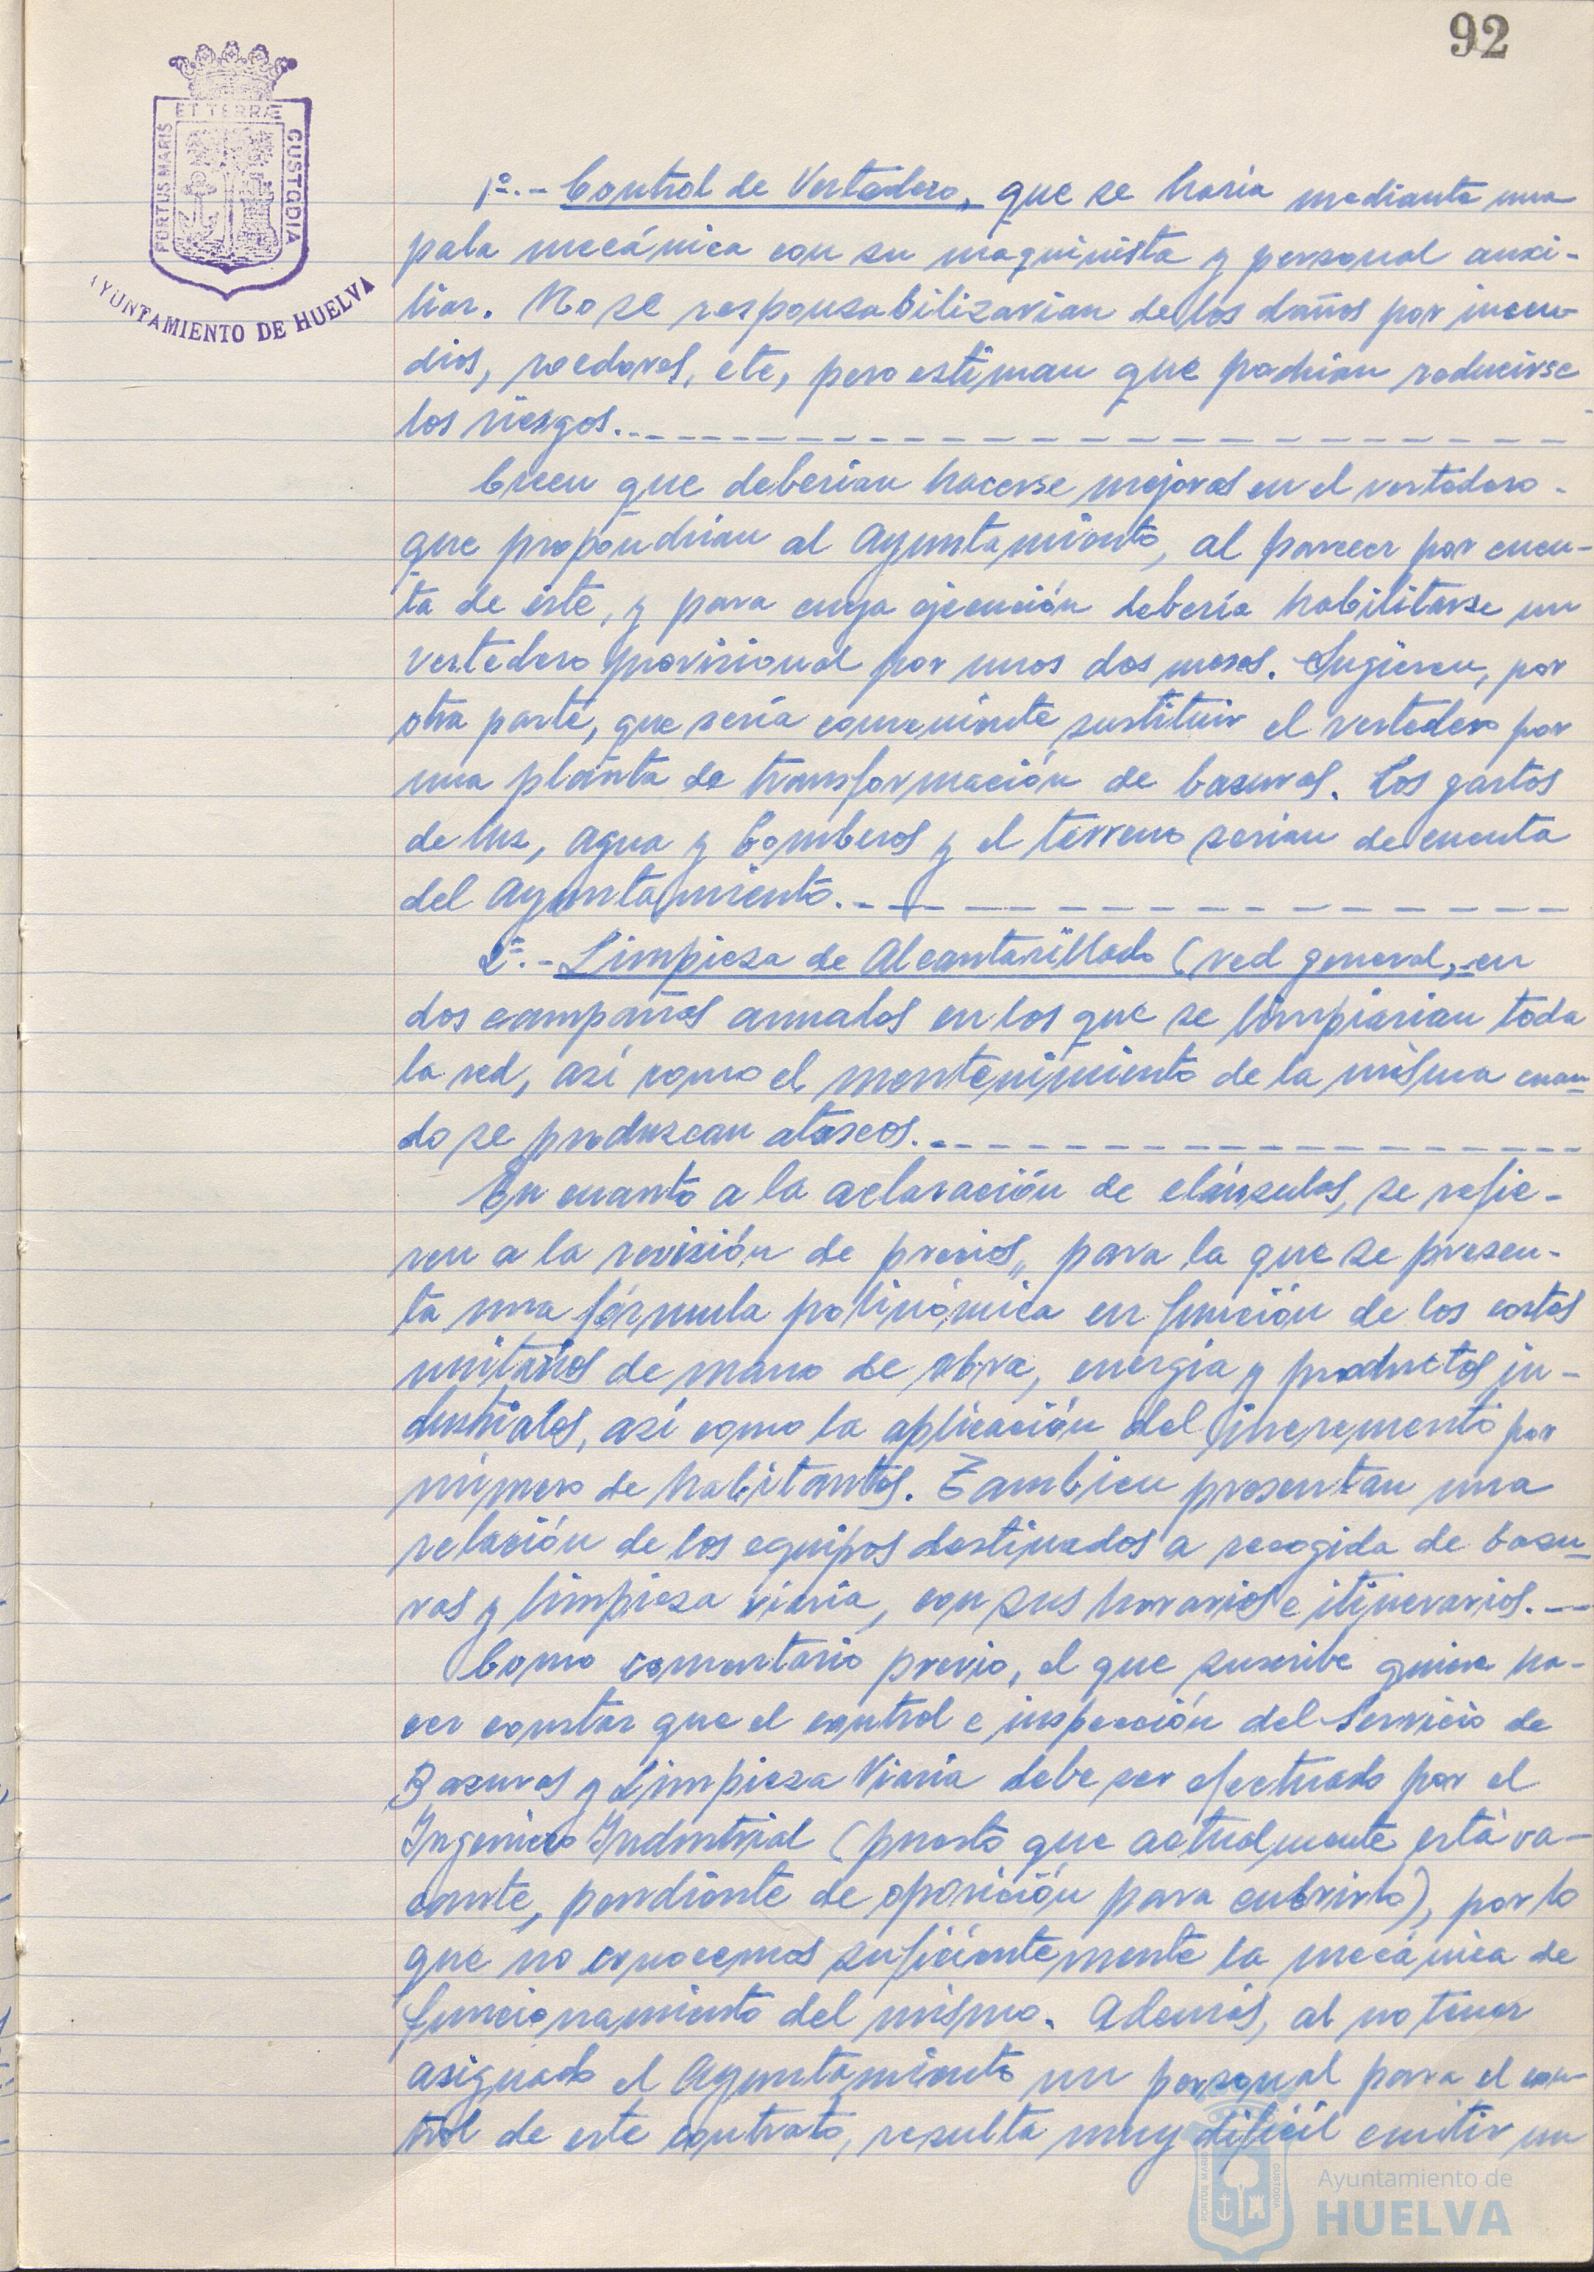 92
ET TERRÆ
PORTUS MARIS
CUSTODIA
AYUNTAMIENTO DE HUELVA
1º.- Control de Vertedero, que se haria mediante una
pala mecánica con su maquinista y personal auxi-
liar. No se responsabilizarian de los daños por incen-
dios, roedores, etc, pero estiman que podrian reducirse
los riesgos.
Creen que deberian hacerse mejoras en el vertedero
que propondrian al Ayuntamiento, al parecer por cuen-
ta de éste, y para cuya ejecución debería habilitarse un
vertedero provisional por unos dos meses. Sugieren, por
otra parte, que sería conveniente sustituir el vertedero por
una planta de transformación de basuras. Los gastos
de luz, agua y bomberos y el terreno serian de cuenta
del Ayuntamiento.
2º.- Limpieza de Alcantarillado (red general, en
dos campañas anuales en los que se limpiarian toda
la red, así como el mantenimiento de la misma cuan-
do se produzcan atascos.
En cuanto a la aclaración de cláusulas, se refie-
ren a la revisión de precios, para la que se presen-
ta una fórmula polinómica en función de los costos
unitarios de mano de obra, energia y productos in-
dustriales, así como la aplicación del incremento por
número de habitantes. Tambien presentan una
relación de los equipos destinados a recogida de basu-
ras y limpieza viaria, con sus horarios e itinerarios.
Como comentario previo, el que suscribe quiere ha-
cer constar que el control e inspección del Servicio de
Basuras y Limpieza Viaria debe ser efectuado por el
Ingeniero Industrial (puesto que actualmente está va-
cante, pendiente de oposición para cubrirlo), por lo
que no conocemos suficientemente la mecánica de
funcionamiento del mismo. Además, al no tener
asignado el Ayuntamiento un personal para el con-
trol de este contrato, resulta muy dificil emitir un
Ayuntamiento de
HUELVA